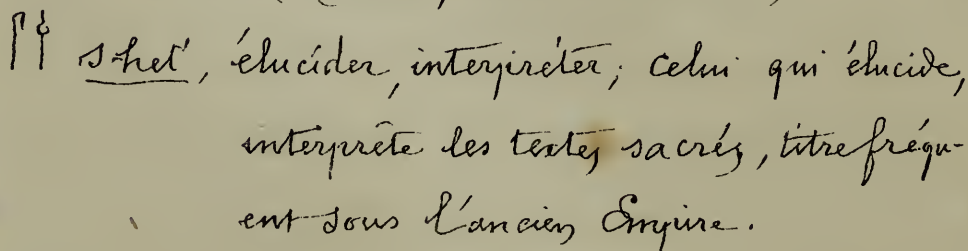 𓋴𓌂 shet', élucider, interpréter; celui qui élucide,
interprète les textes sacrés, titre fréqu-
ent sous l'ancien Empire.